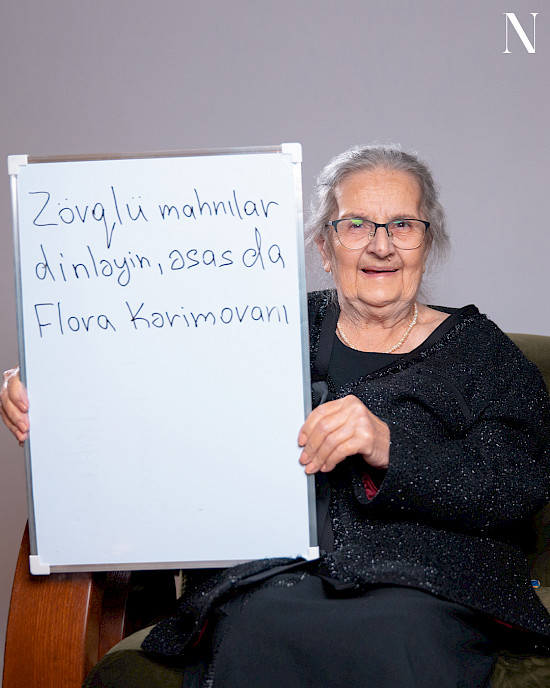 N
Zövqlü mahnılar
dinləyin, əsas da
Flora Kərimovanı